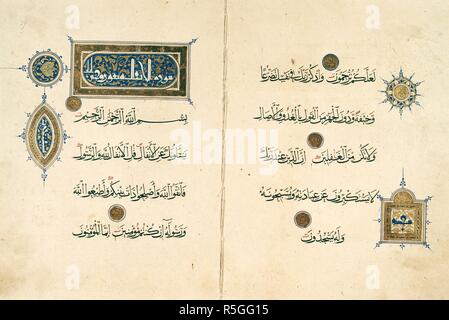 لعلكم ترحمون واذكر ربك في نفسك تضرعا
وخيفة ودون الجهر من القول بالغدو والاصال
ولا تكن من الغفلين ان الذين عند ربك
لا يستكبرون عن عبادته ويسبحونه
وله يسجدون
سورة الانفال
بسم الله الرحمن الرحيم
يسئلونك عن الانفال قل الانفال لله والرسول
فاتقوا الله واصلحوا ذات بينكم واطيعوا الله
ورسوله ان كنتم مؤمنين انما المؤمنون